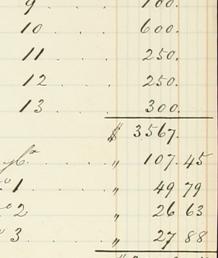 9 . . . . 700.
10 . . . . 600.
11 . . . . 250.
12 . . . . 250.
13 . . . . 300.
$ 3567.
. . . . " 107.45
1 . . . . " 49 79
2 . . . . " 26 63
3 . . . . " 27 88